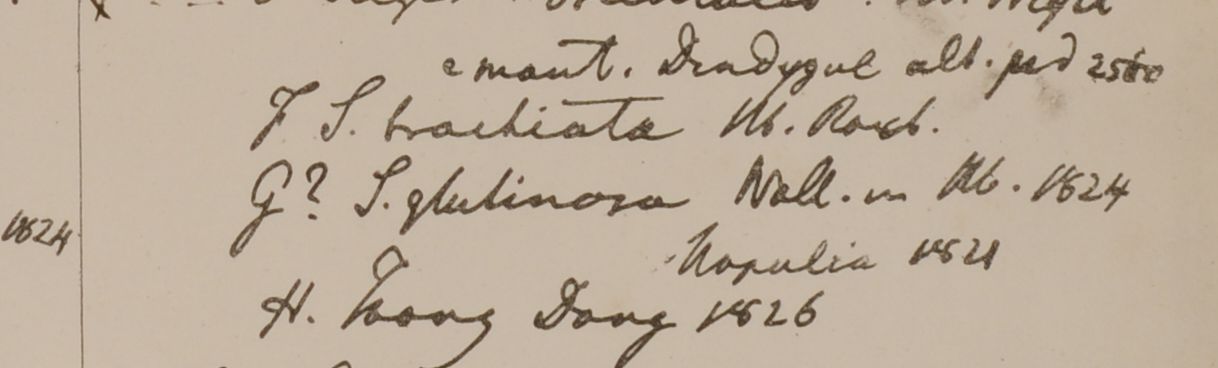 e mont. Dindygul alt. ped 2500
F S. brachiata Hb. Roxb.
G? S. glutinosa Wall. in Hb. 1824
1824
Napalia 1821
H. Toong Dong 1826